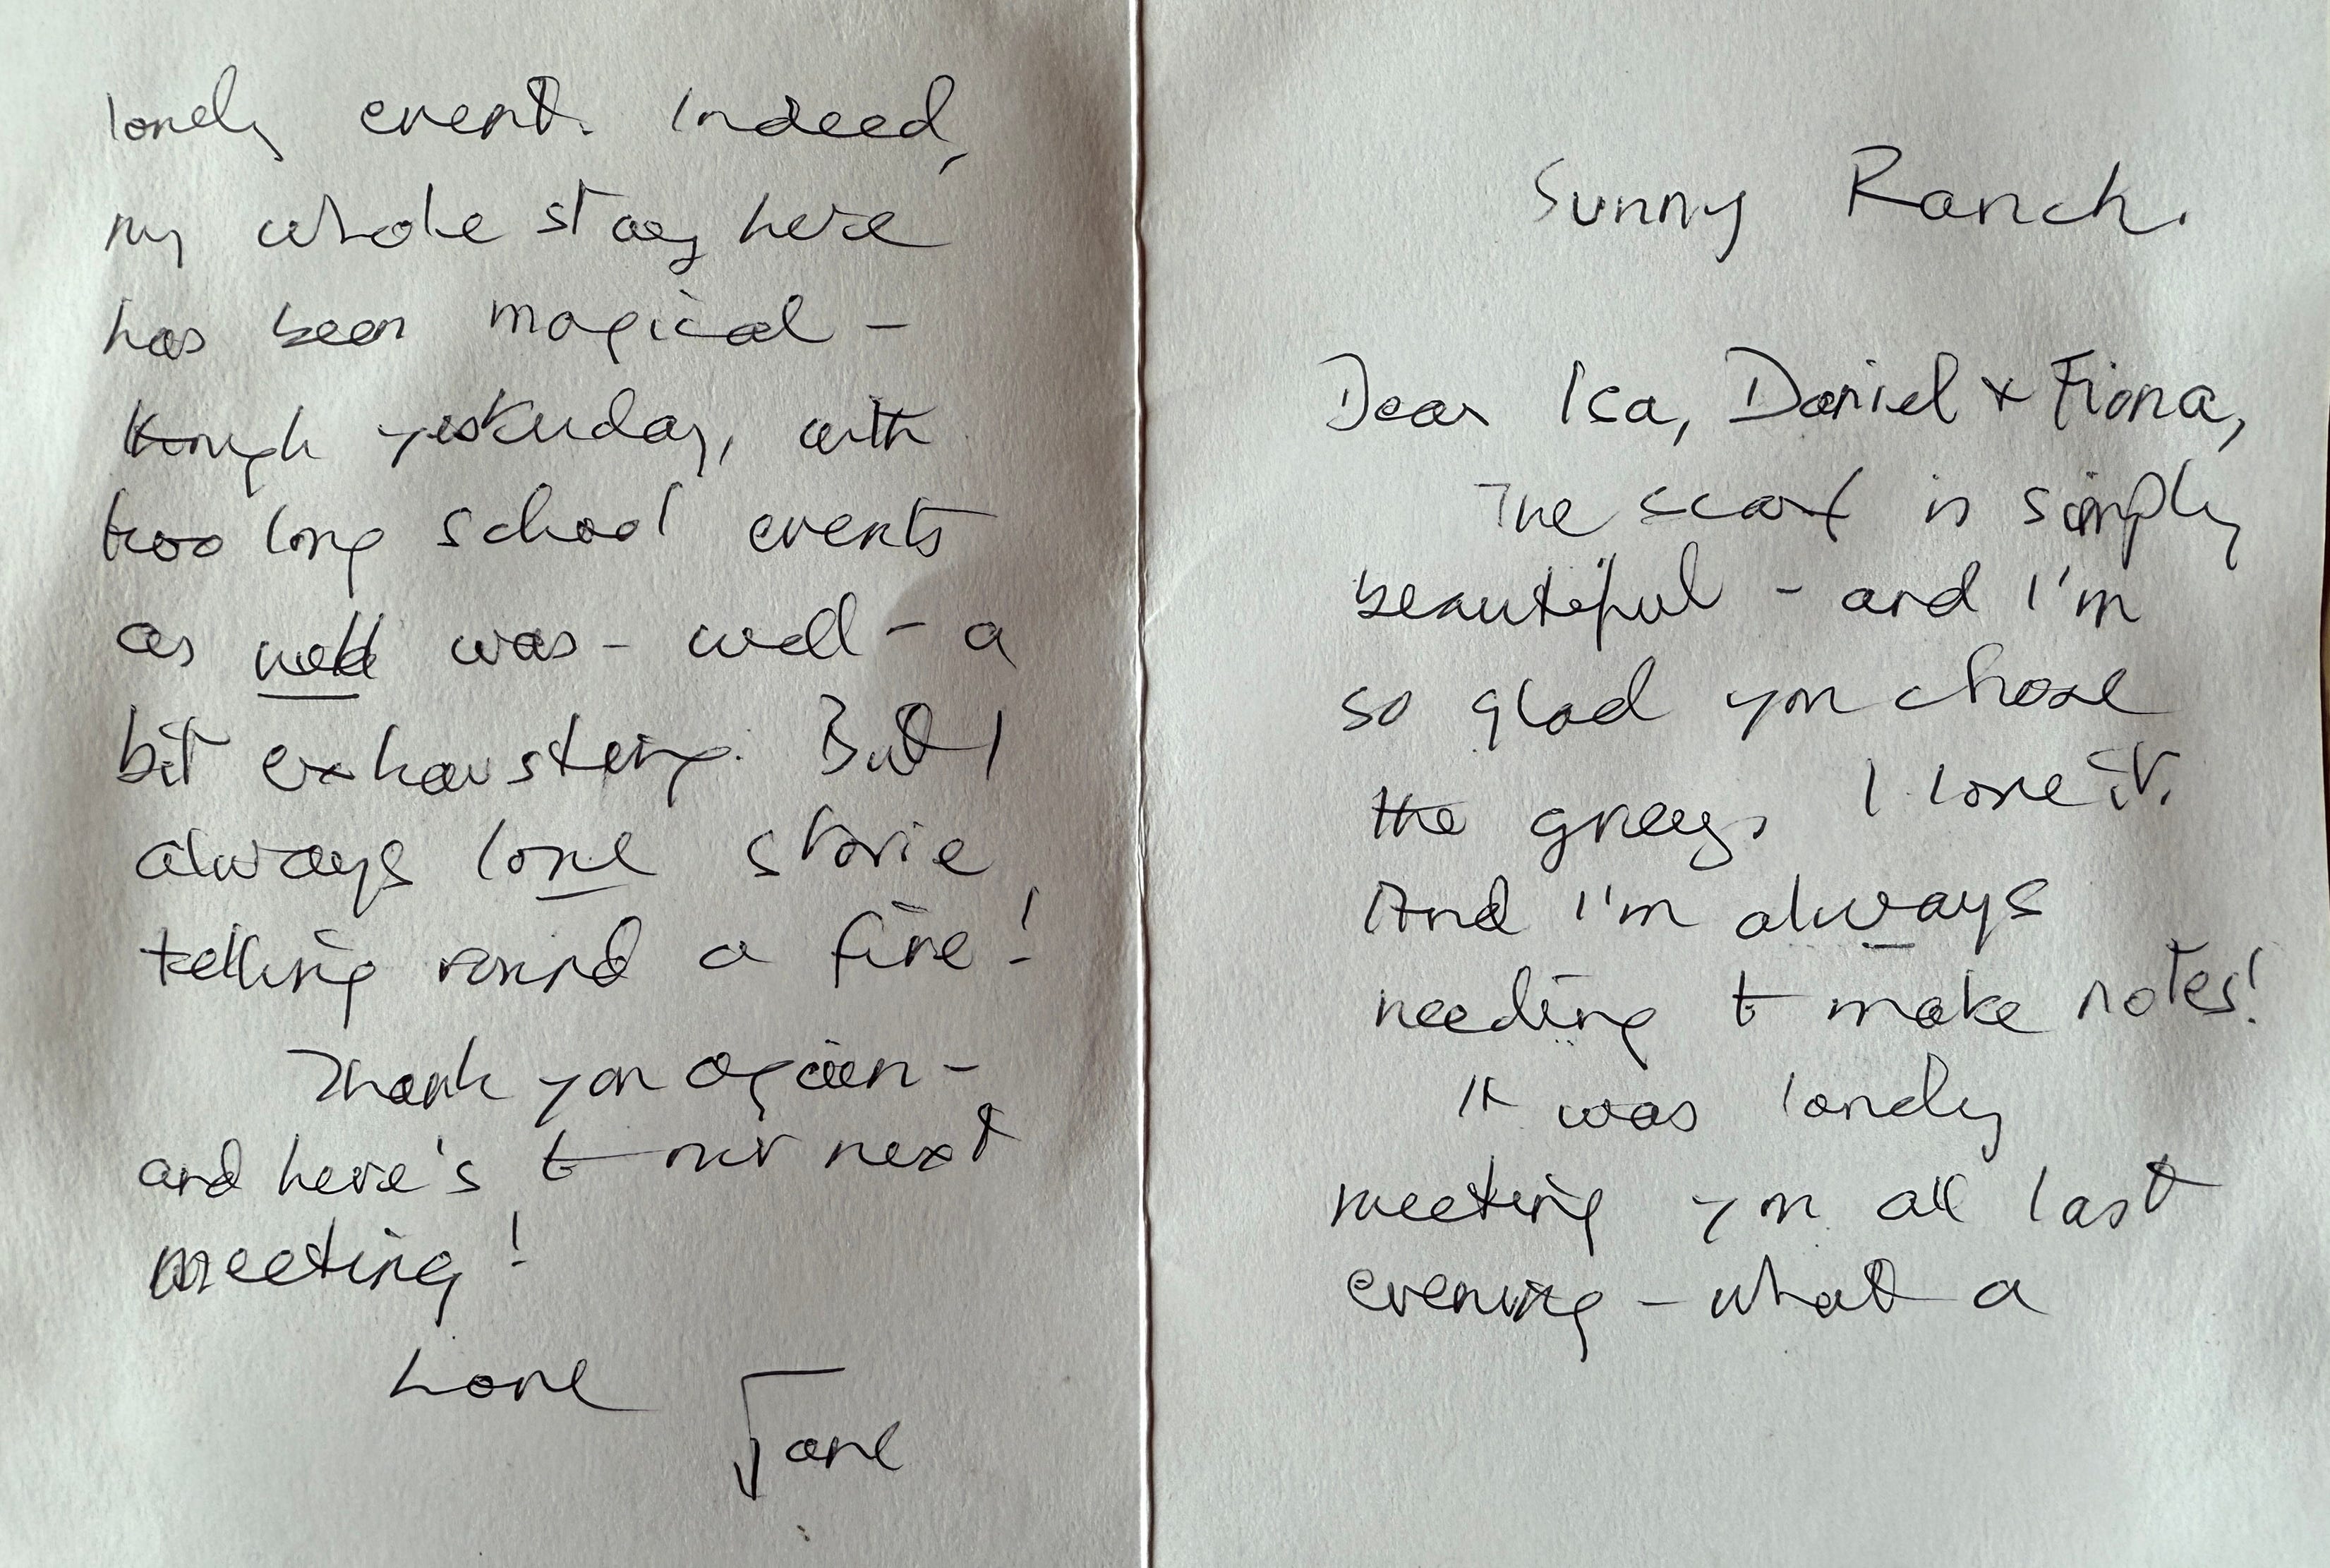 Sunny Ranch.
Dear Isa, Daniel + Fiona,
The scarf is simply
beautiful - and I'm
so glad you chose
the grey. I love it.
And I'm always
needing to make notes!
It was lovely
meeting you all last
evening - what a
lovely event. Indeed,
my whole stay here
has been magical -
though yesterday, with
two long school events
as well was - well - a
bit exhausting. But I
always love storie
telling round a fire!
Thank you again -
and here's to our next
meeting!
Love Jane